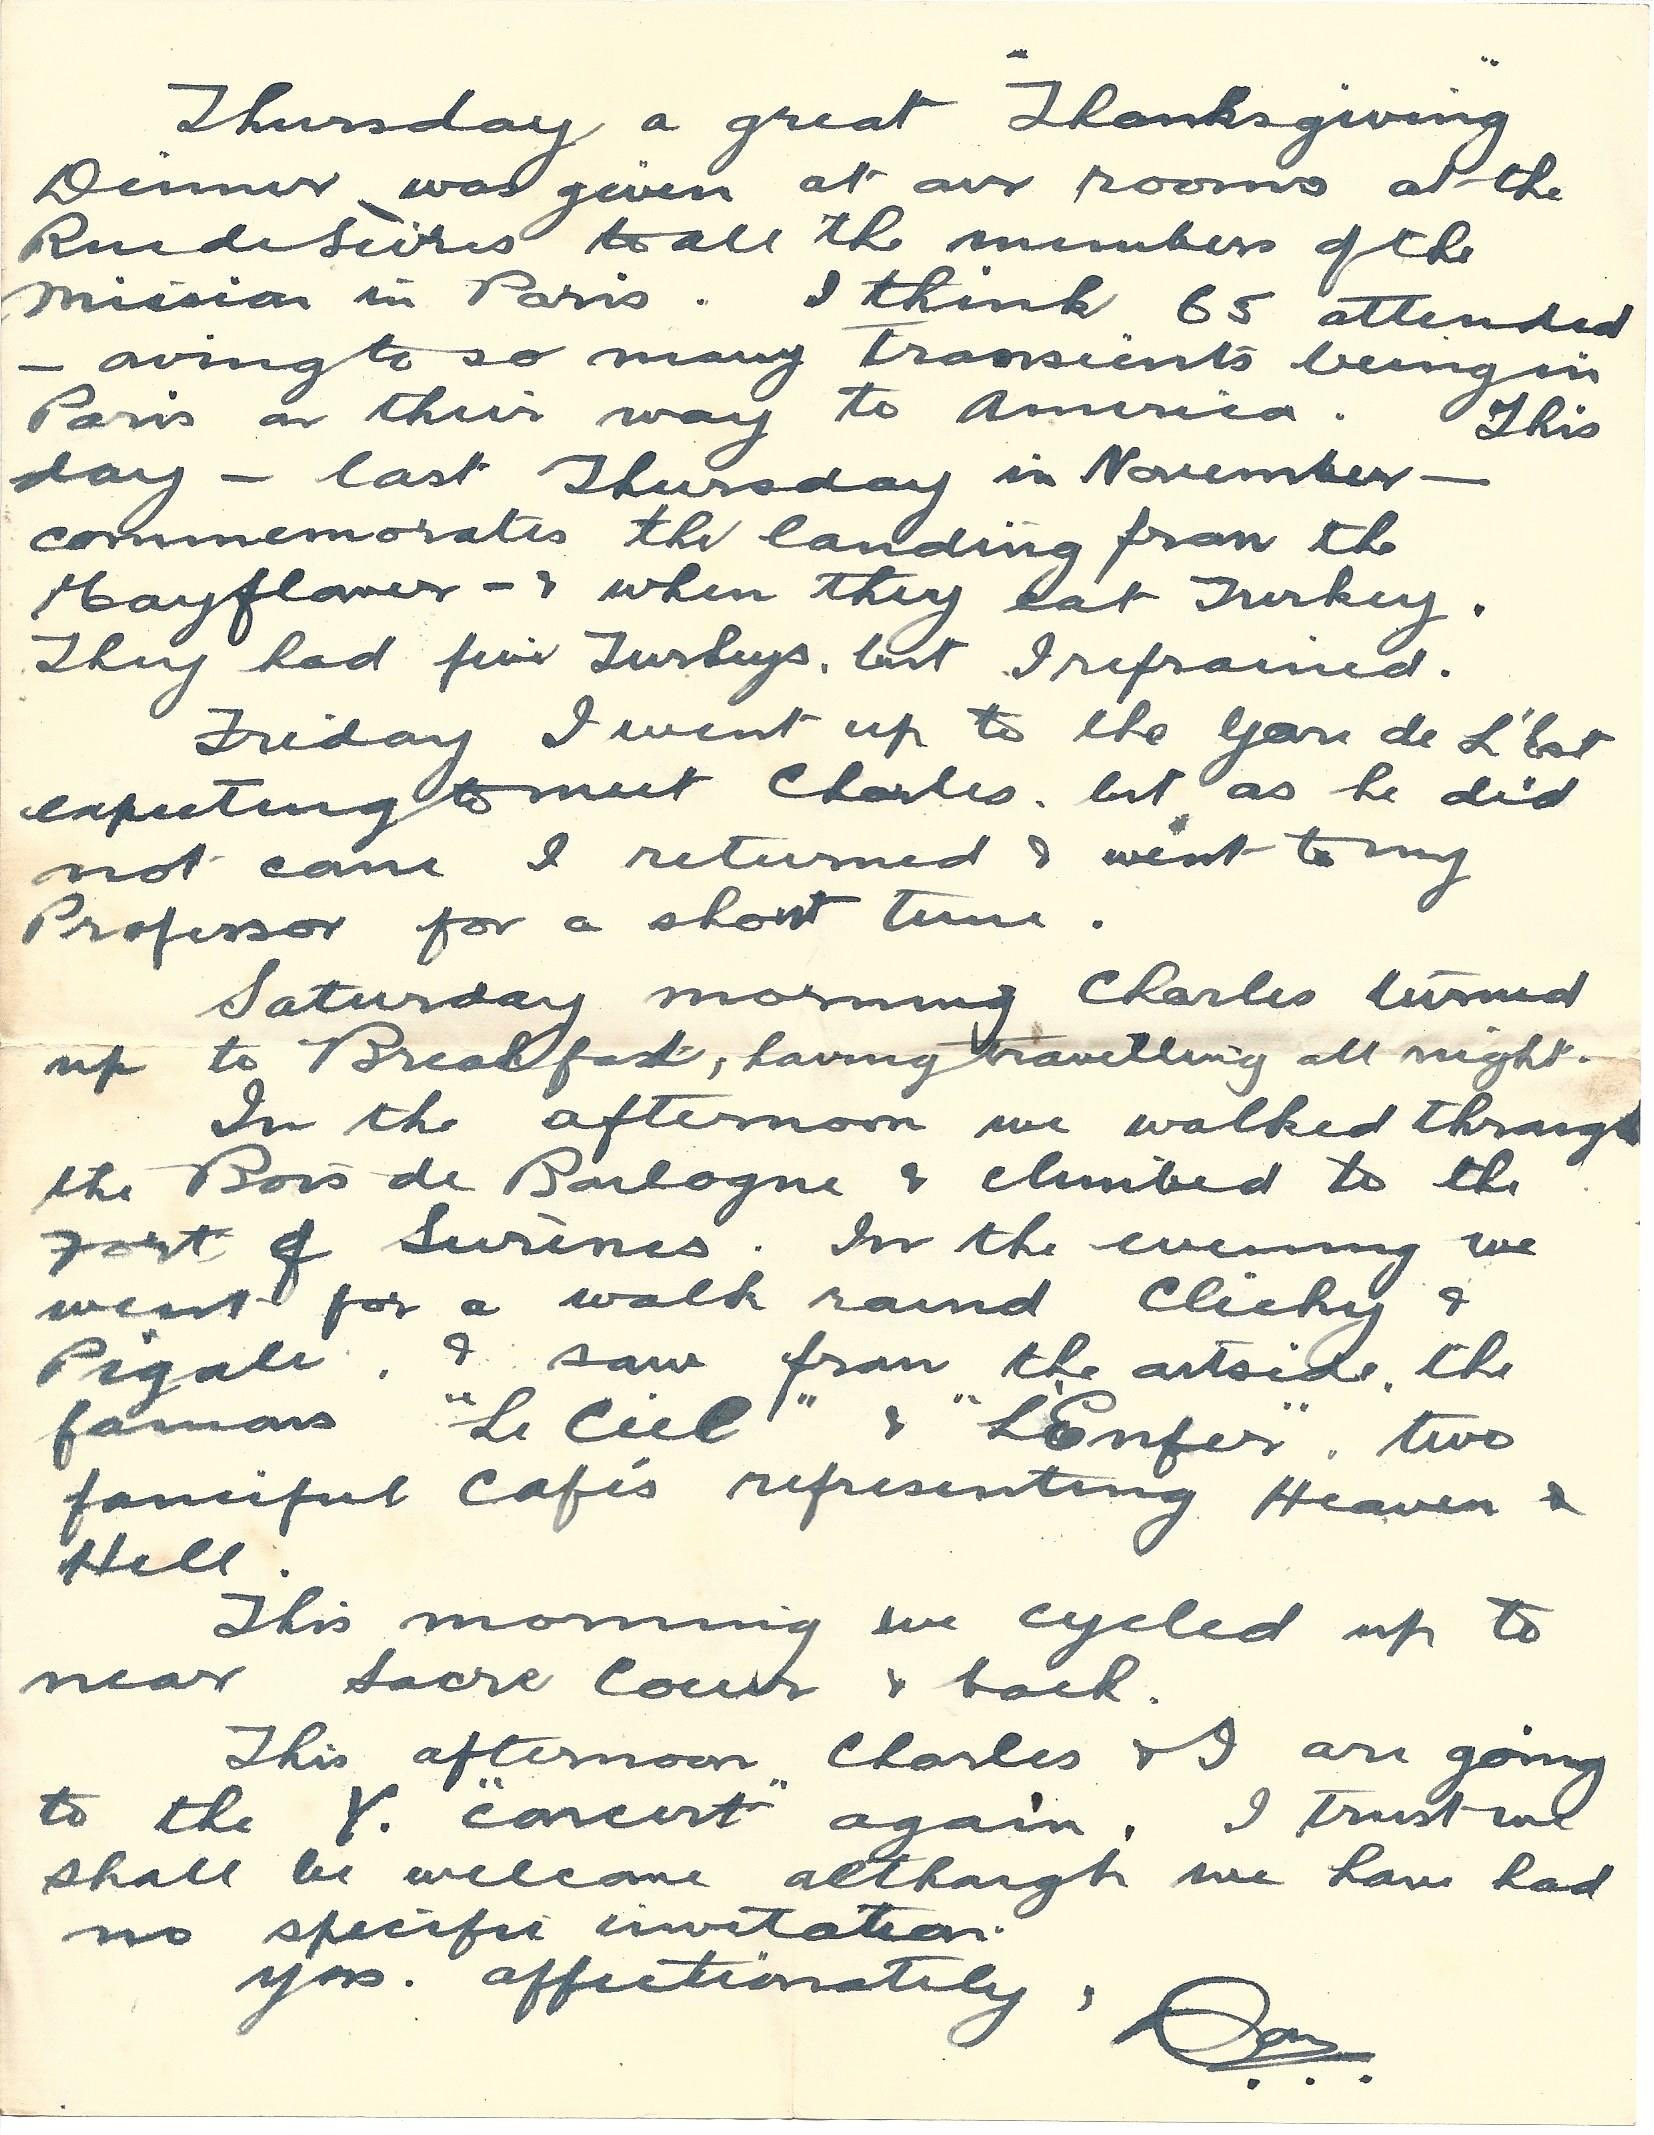 Thursday a great "Thanksgiving"
Dinner was given at our rooms at the
Rue de Sèvres to all the members of the
Mission in Paris. I think 65 attended
- owing to so many transients being in
Paris on their way to America. This
day - last Thursday in November -
commemorates the landing from the
Mayflower - & when they eat Turkey.
They had five Turkeys, but I refrained.
Friday I went up to the Gare de L'Est
expecting to meet Charles, but as he did
not come I returned & went to my
Professor for a short time.
Saturday morning Charles turned
up to Breakfast, having travelling all night.
In the afternoon we walked through
the Bois de Boulogne & climbed to the
Fort of Surènes. In the evening we
went for a walk round Clichy &
Pigale. & saw from the outside, the
famous "Le Ciel" & "L'Enfer", two
fanciful Cafés representing Heaven &
Hell.
This morning we cycled up to
near Sacre Coeur & back.
This afternoon Charles & I are going
to the Y. "concert" again. I trust we
shall be welcome although we have had
no specific invitation.
yrs. affectionately,